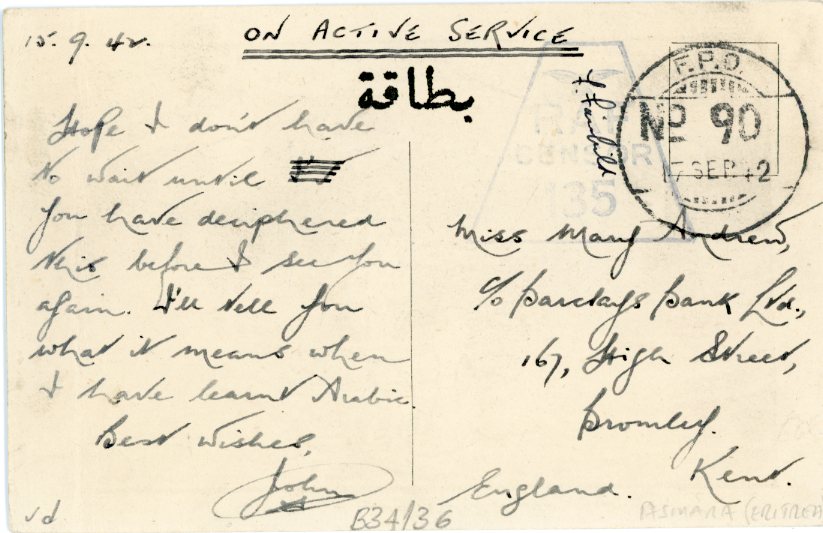 15.9.42.
ON ACTIVE SERVICE
بطاقة
Hope I don't have
to wait until
you have deciphered
this before I see you
again. I'll tell you
what it means when
I have learnt Arabic.
Best wishes,
John
F.P.O.
No 90
17 SEP. 42
RAF
CENSOR
135
Miss Mary Andrew,
c/o Barclays Bank Ltd.,
167, High Street,
Bromley.
Kent.
England.
B34/36
ASMARA (ERITREA)